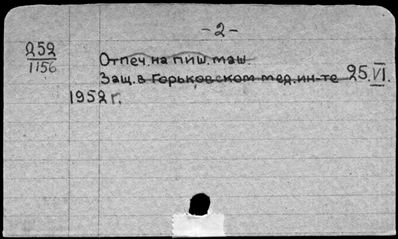 -2-
252
1156
Отпеч. на пиш. маш.
Защ. в Горьковском мед. ин-те 25.VI.
1952 г.